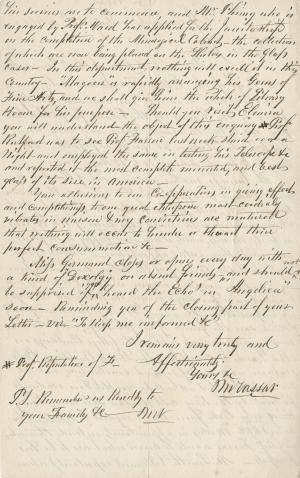 his services are to commence and Mr. Ebsing who is
engaged by Prof. Ward has applied for the                 
on the completion of the Mineralogical Cabinet the collection
of which are now being placed on the Shelves in the Glass
Cases – In this department nothing will excell it in this
Country – "Magoon" is rapidly arranging his Gems of
Fine Arts, and we shall give him the whole of Library
Room for his purpose – Should you visit Elmira
you will understand the object of this enquiry # Prof
        was to see Prof Farrar last week staid over a
Night and employed the same in testing his Telescope &c
and reported it the most complete mounted, and best
        of its size in America
Your advisory to our Co-operation in giving effect
and completeness to our great enterprise most cordially
vibrates in unison & my convictions are            
that nothing will occur to hinder or thwart their
perfect consummation &c –
Miss           claps or         every day with not
a kind of "Doxology" on absent friends, and should
be supposed if you heard the Echo's in "Angelica"
soon – Reminding you of the closing part of your
Letter – Viz "To Keep me informed &c"
I remain very truly and
Affectionately
Yours &c
M Vassar
# Prof. Reputation of F–
P.S. Remember us Kindly to
your Family &c – MV